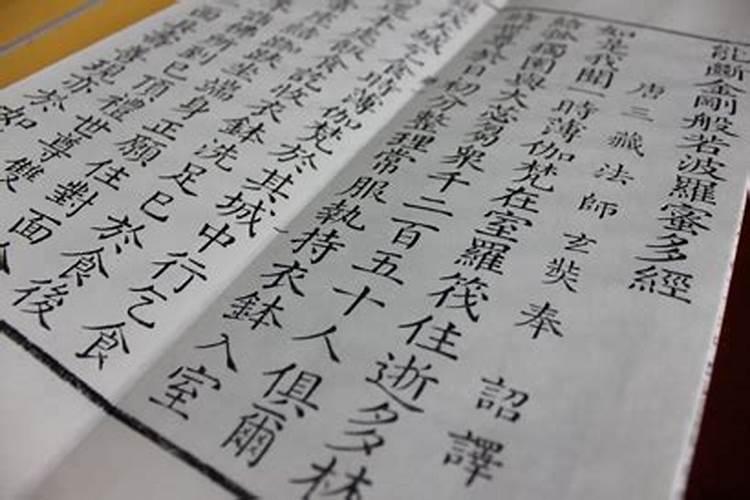 能斷金剛般若波羅蜜多經
唐三藏法師玄奘奉 詔譯
如是我聞一時薄伽梵在室羅筏住逝多林
給孤獨園與大苾芻眾千二百五十人俱爾
時世尊於日初分整理常服執持衣鉢入室
大城乞食時薄伽梵於其城中行乞食
還本處飯食訖收衣鉢洗足已於食後
座結跏趺坐端身正願住對面
詣佛所到已頂禮世尊雙
面具壽善現亦於如